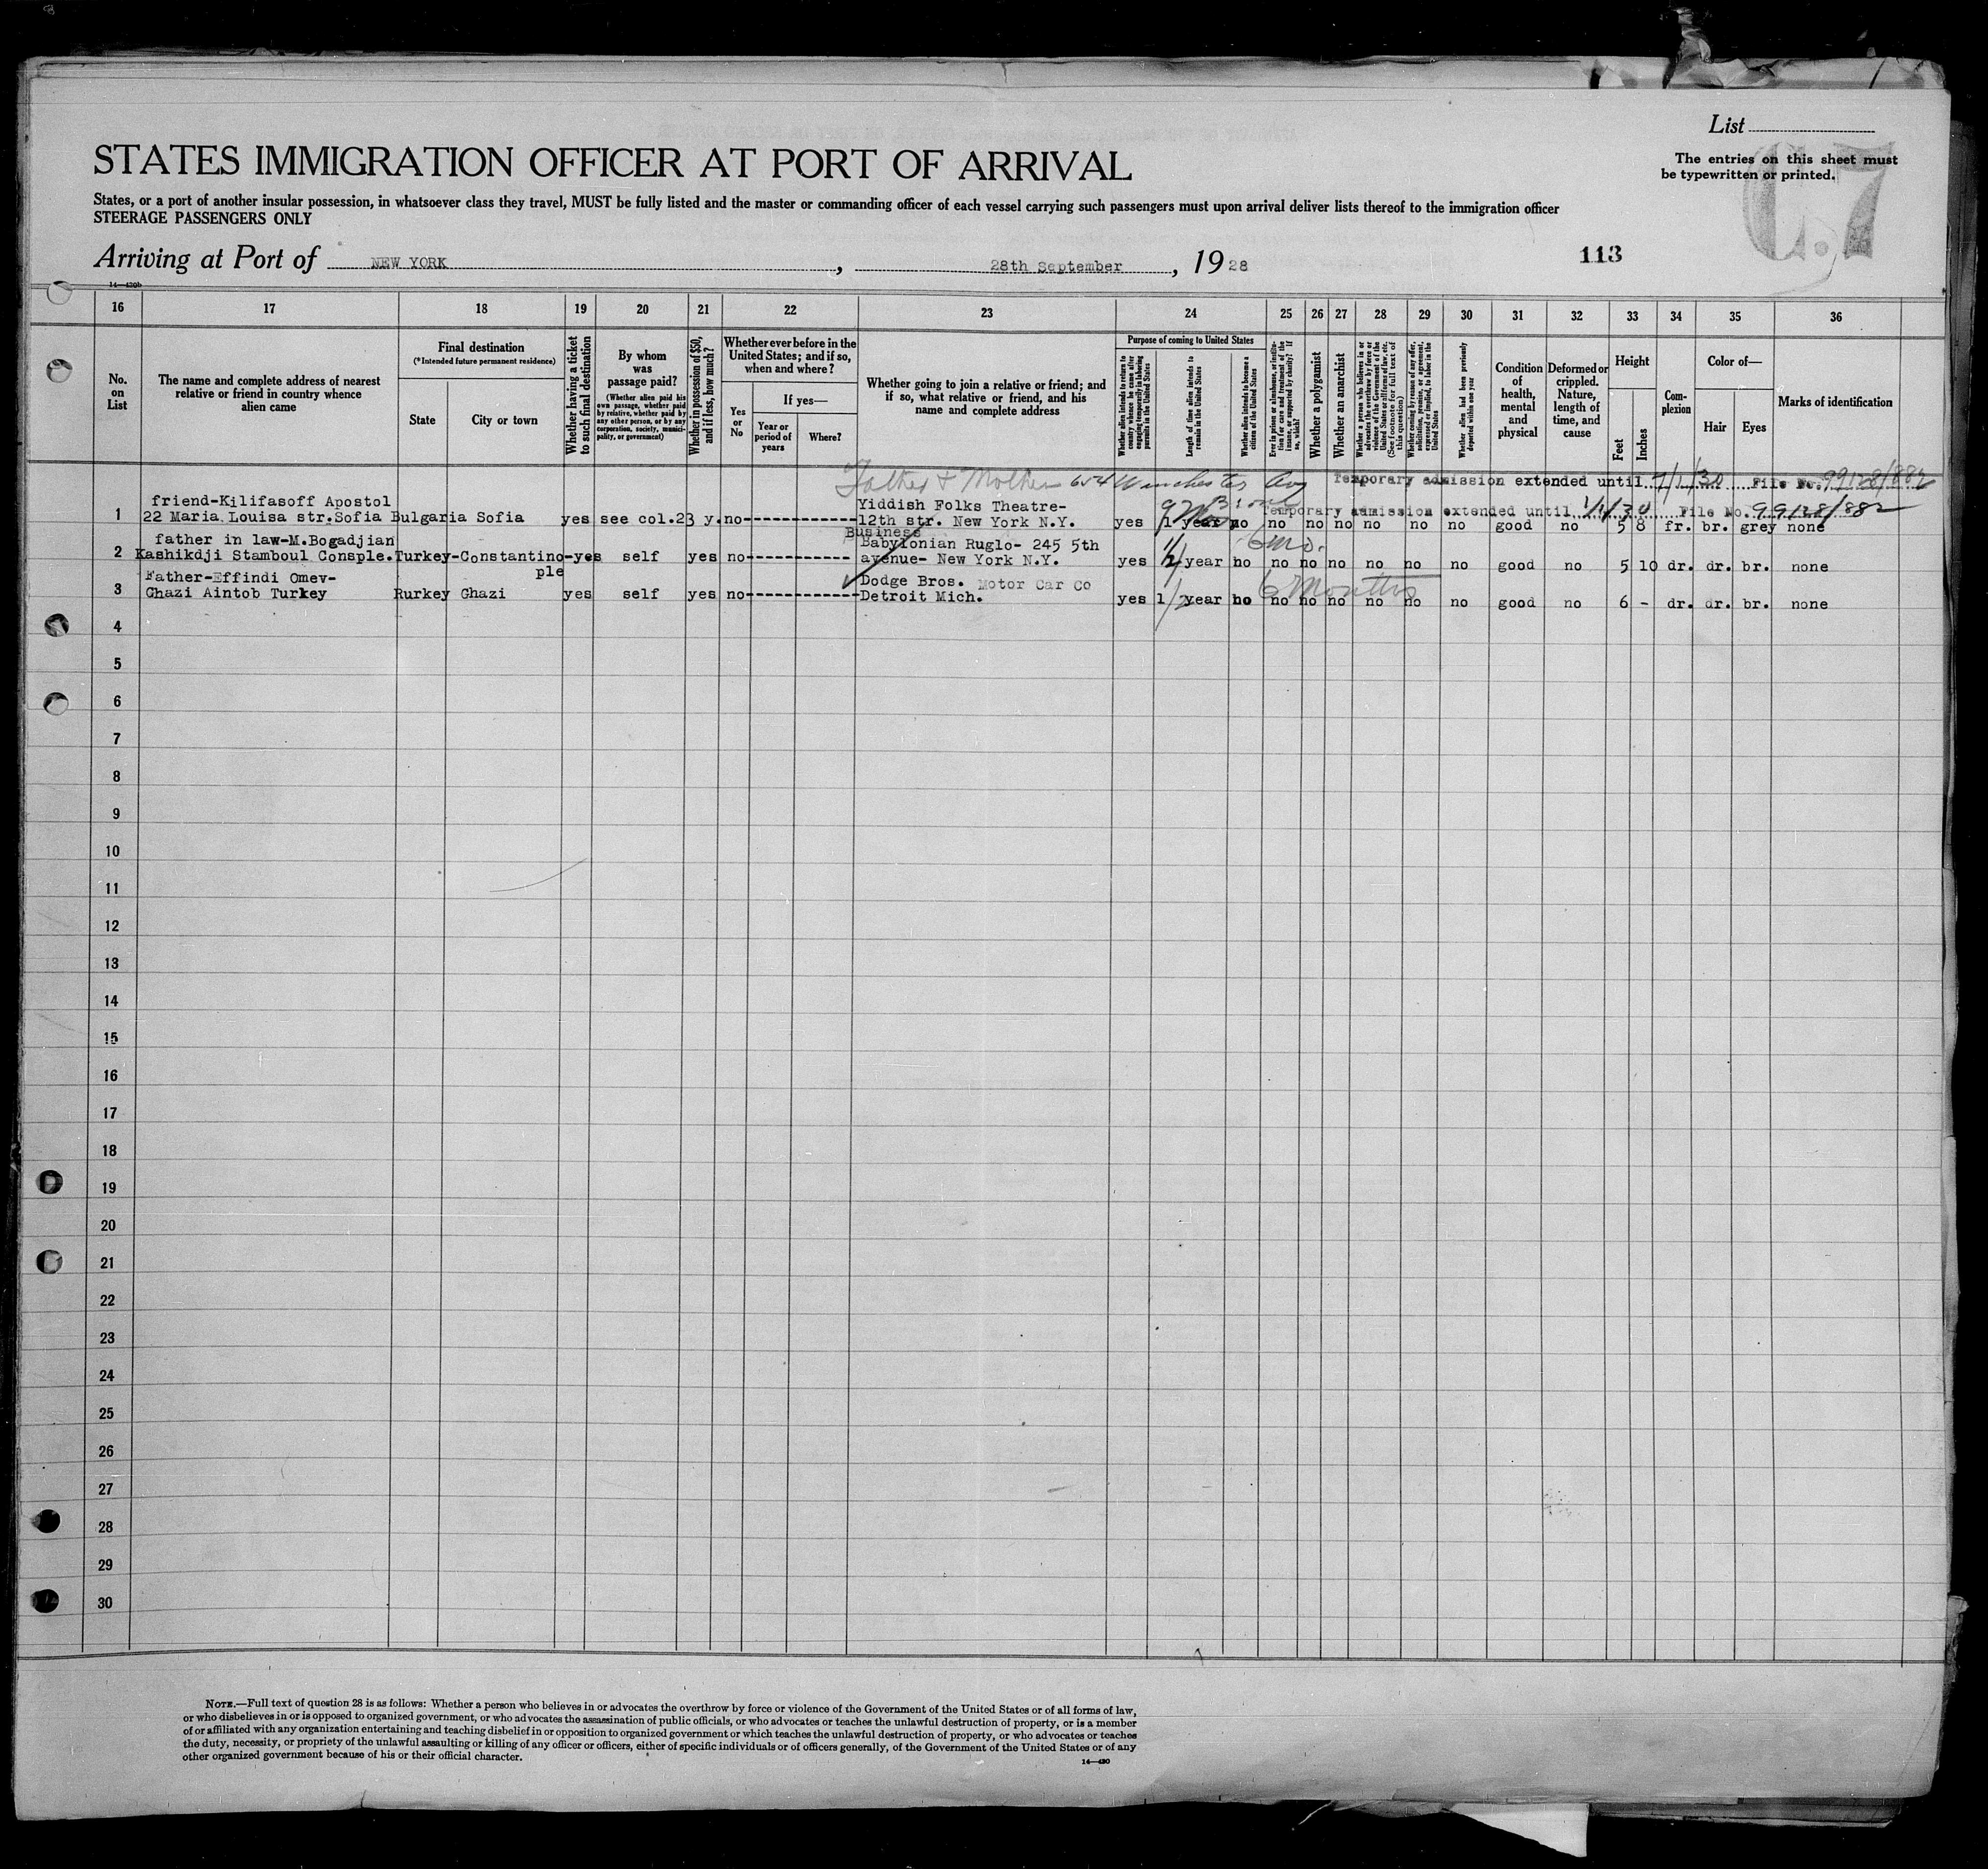 List
STATES IMMIGRATION OFFICER AT PORT OF ARRIVAL
The entries on this sheet must
be typewritten or printed.
C.7
States, or a port of another insular possession, in whatsoever class they travel, MUST be fully listed and the master or commanding officer of each vessel carrying such passengers must upon arrival deliver lists thereof to the immigration officer
STEERAGE PASSENGERS ONLY
Arriving at Port of NEW YORK, 28th September, 1928
113
14—430b
16 17 18 19 20 21 22 23 24 25 26 27 28 29 30 31 32 33 34 35 36
No.
on
List
The name and complete address of nearest
relative or friend in country whence
alien came
Final destination
(*Intended future permanent residence)
State
City or town
Whether having a ticket
to such final destination
By whom
was
passage paid?
(Whether alien paid his
own passage, whether paid
by relative, whether paid by
any other person, or by any
corporation, society, munici-
pality, or government)
Whether in possession of $50,
and if less, how much?
Whether ever before in the
United States; and if so,
when and where?
Yes
or
No
If yes—
Year or
period of
years
Where?
Whether going to join a relative or friend; and
if so, what relative or friend, and his
name and complete address
Purpose of coming to United States
Whether alien intends to return to
country whence he came after
engaging temporarily in laboring
pursuits in the United States
Length of time alien intends to
remain in the United States
Whether alien intends to become a
citizen of the United States
Ever in prison or almshouse, or institu-
tion for care and treatment of the
insane, or supported by charity? If
so, which?
Whether a polygamist
Whether an anarchist
Whether a person who believes in or
advocates the overthrow by force or
violence of the Government of the
United States or all forms of law, etc.
(See footnote for full text of
this question)
Whether coming by reason of any offer,
solicitation, promise, or agreement,
expressed or implied, to labor in the
United States
Whether alien had been previously
deported within one year
Condition
of
health,
mental
and
physical
Deformed or
crippled.
Nature,
length of
time, and
cause
Height
Feet
Inches
Com-
plexion
Color of—
Hair
Eyes
Marks of identification
Father & Mother 654 Winchester Ave Temporary admission extended until 7/1/30 File No. 99128/882
friend-Kilifasoff Apostol Yiddish Folks Theatre- Temporary admission extended until 1/1/30 File No. 99128/882
1 22 Maria Louisa str.Sofia Bulgaria Sofia yes see col.23 y.no------------12th str. New York N.Y. yes 1 year no no no no no no no good no 5 8 fr. br. grey none
Business
father in law-M.Bogadjian Babylonian Ruglo- 245 5th 6 mo.
2 Kashikdji Stamboul Consple.Turkey-Constantino-yes self yes no----------- avenue- New York N.Y. yes 1/2 year no no no no no no no good no 5 10 dr. dr. br. none
ple
Father-Effindi Omev- Dodge Bros. Motor Car Co 6 Months
3 Ghazi Aintob Turkey Rurkey Ghazi yes self yes no------------Detroit Mich. yes 1/2year no no no no no no no good no 6 - dr. dr. br. none
4
5
6
7
8
9
10
11
12
13
14
15
16
17
18
19
20
21
22
23
24
25
26
27
28
29
30
NOTE.—Full text of question 28 is as follows: Whether a person who believes in or advocates the overthrow by force or violence of the Government of the United States or of all forms of law,
or who disbelieves in or is opposed to organized government, or who advocates the assassination of public officials, or who advocates or teaches the unlawful destruction of property, or is a member
of or affiliated with any organization entertaining and teaching disbelief in or opposition to organized government or which teaches the unlawful destruction of property, or who advocates or teaches
the duty, necessity, or propriety of the unlawful assaulting or killing of any officer or officers, either of specific individuals or of officers generally, of the Government of the United States or of any
other organized government because of his or their official character.
14—430